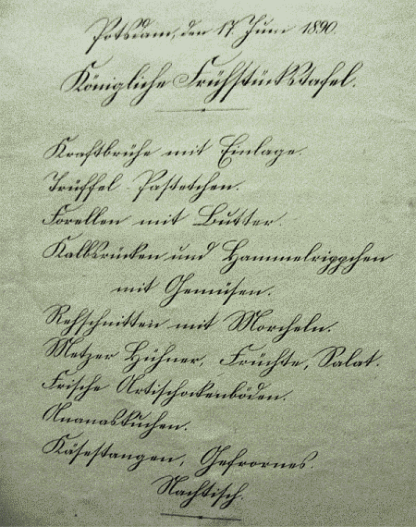 Potsdam, den 17. Juni 1890.
Königliche Frühstückstafel.
Kraftbrühe mit Einlage.
Trüffel-Pastetchen.
Forellen mit Butter.
Kalbsrücken und Hammelrippchen
mit Gemüsen.
Rehschnitten mit Morcheln.
Metzer Hühner, Früchte, Salat.
Frische Artischockenböden.
Ananaskuchen.
Käsestangen, Gefrornes.
Nachtisch.